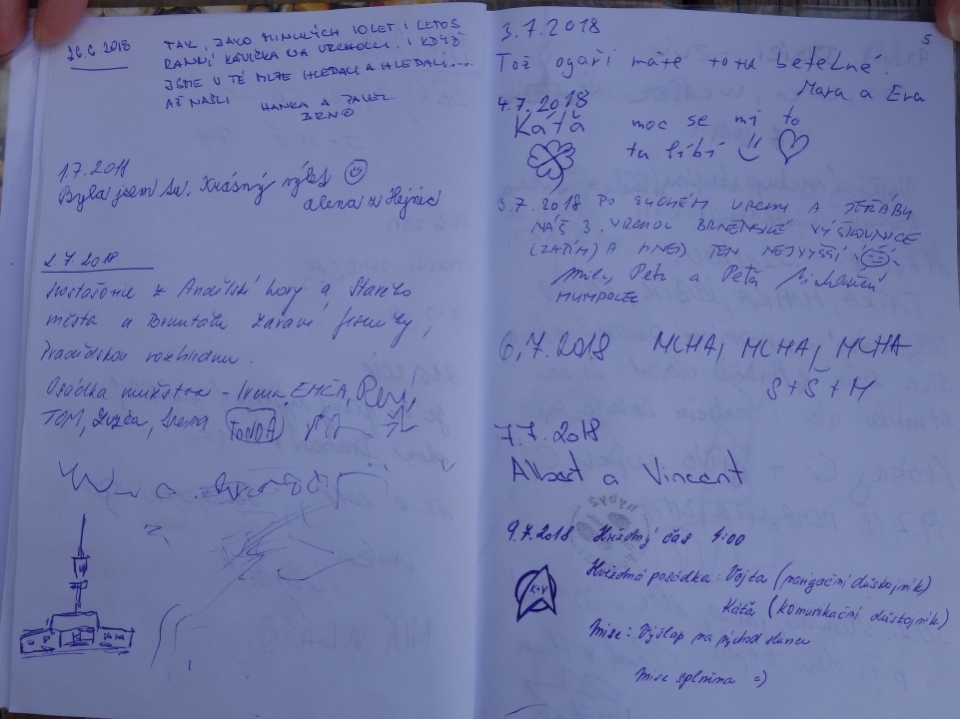 26.6. 2018
TAK, JAKO MINULÝCH 10 LET I LETOS
RANNÍ KÁVIČKA NA VRCHOLU. I KDYŽ
JSME V TÉ MLZE HLEDALI A HLEDALI....
AŽ NAŠLI HANKA A PAVEL
BRNO
1.7. 2018
Byla jsem tu. Krásný výlet
alena z Hejnic
2.7. 2018
z Andělské hory a Starého
města u Bruntálu zdraví Jeseníky,
Pradědskou rozhlednu.
Osádka - Irena, EMČA, Reny,
TOM, Zuzča, TONDA
3.7.2018
5
Tož ogaři máte totu betelné.
Mara a Eva
4.7.2018
Káťa moc se mi to
tu líbí
3.7.2018 PO SUCHÉM VRCHU A JEŘÁBU
NÁŠ 3. VRCHOL BRNĚNSKÉ VÝŠKOVNICE
(ZATÍM) A HNED TEN NEJVYŠŠÍ
Petr a Peťa
HUMPOLEC
6.7.2018 MLHA, MLHA, MLHA
S+S+M
7.7.2018
Albert a Vincent
9.7.2018 Hvězdný čas 4:00
K+V
Hvězdná posádka: Vojta (navigační důstojník)
Káťa (komunikační důstojník)
Mise: Výšlap na východ slunce
Mise splněna =)